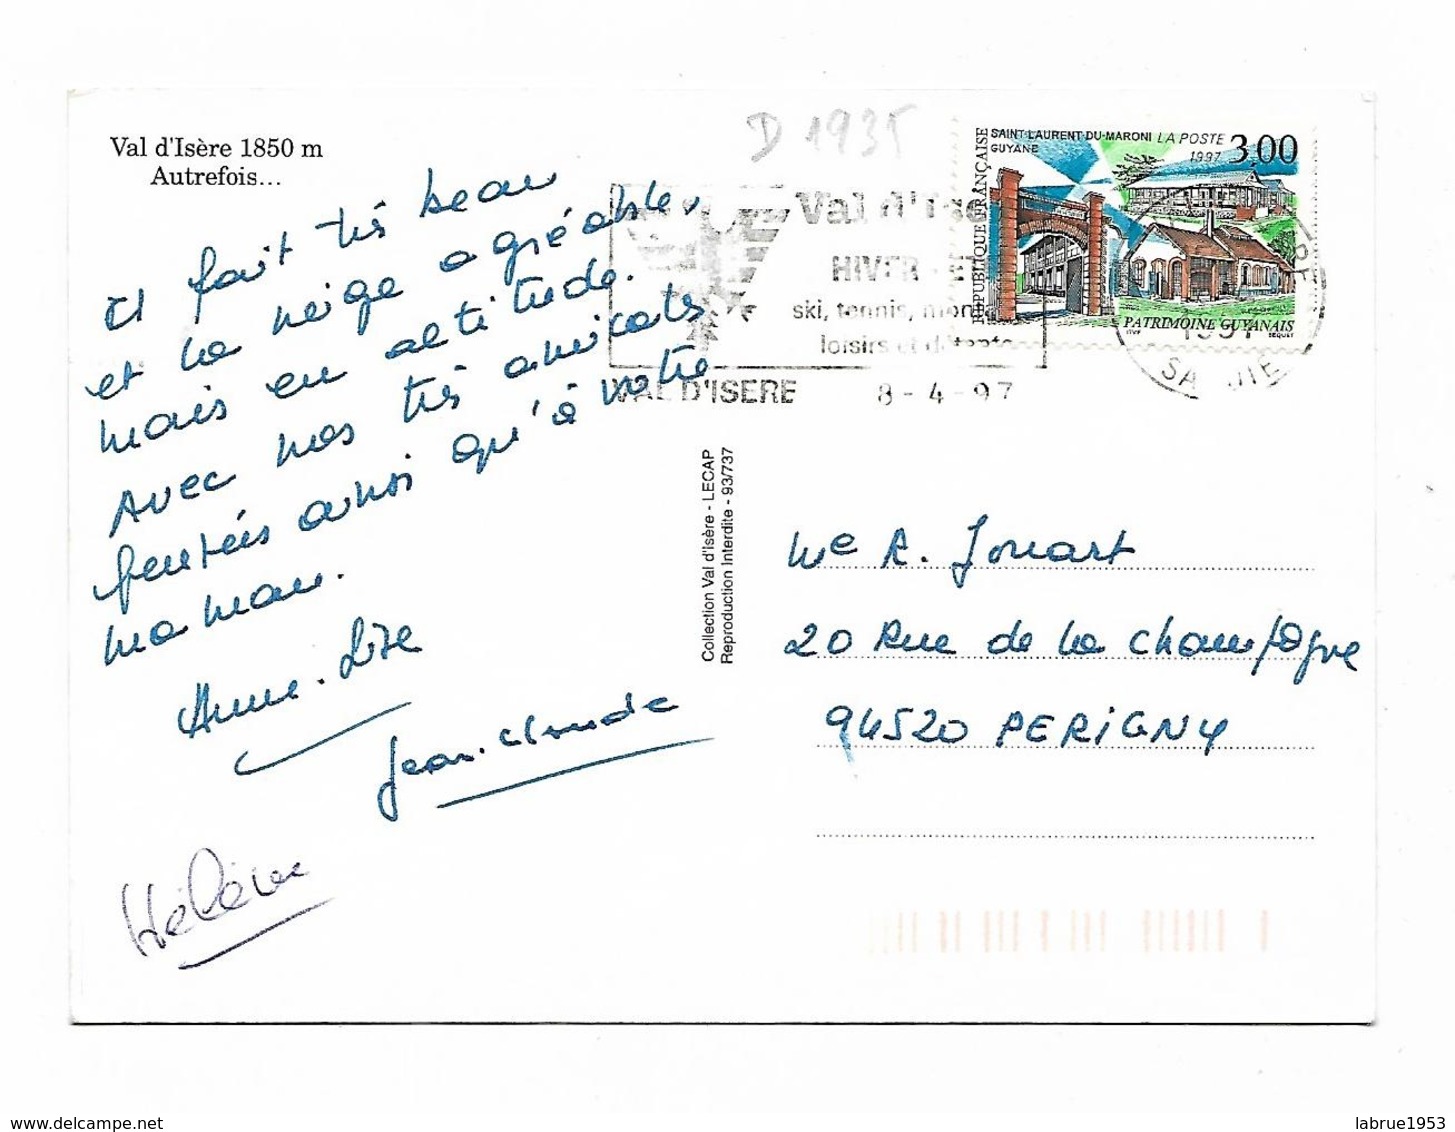 Val d'Isère 1850 m
Autrefois...
Il fait très beau
et la neige agréable,
mais en altitude.
Avec nos très amicales
pensées ainsi qu'à votre
maman.
Anne-Lise
Jean-Claude
Hélène
D 1935
SAINT-LAURENT-DU-MARONI LA POSTE
GUYANE 1997 3,00
RÉPUBLIQUE FRANÇAISE
PATRIMOINE GUYANAIS
Val d'Isè
HIVER - E
ski, tennis,
loisirs et détente
VAL D'ISERE 8-4-97
1997
SAVOIE
Collection Val d'Isère - LECAP
Reproduction Interdite - 93/737
Me R. Jouart
20 Rue de la Champagne
94520 PERIGNY
www.delcampe.net
labrue1953